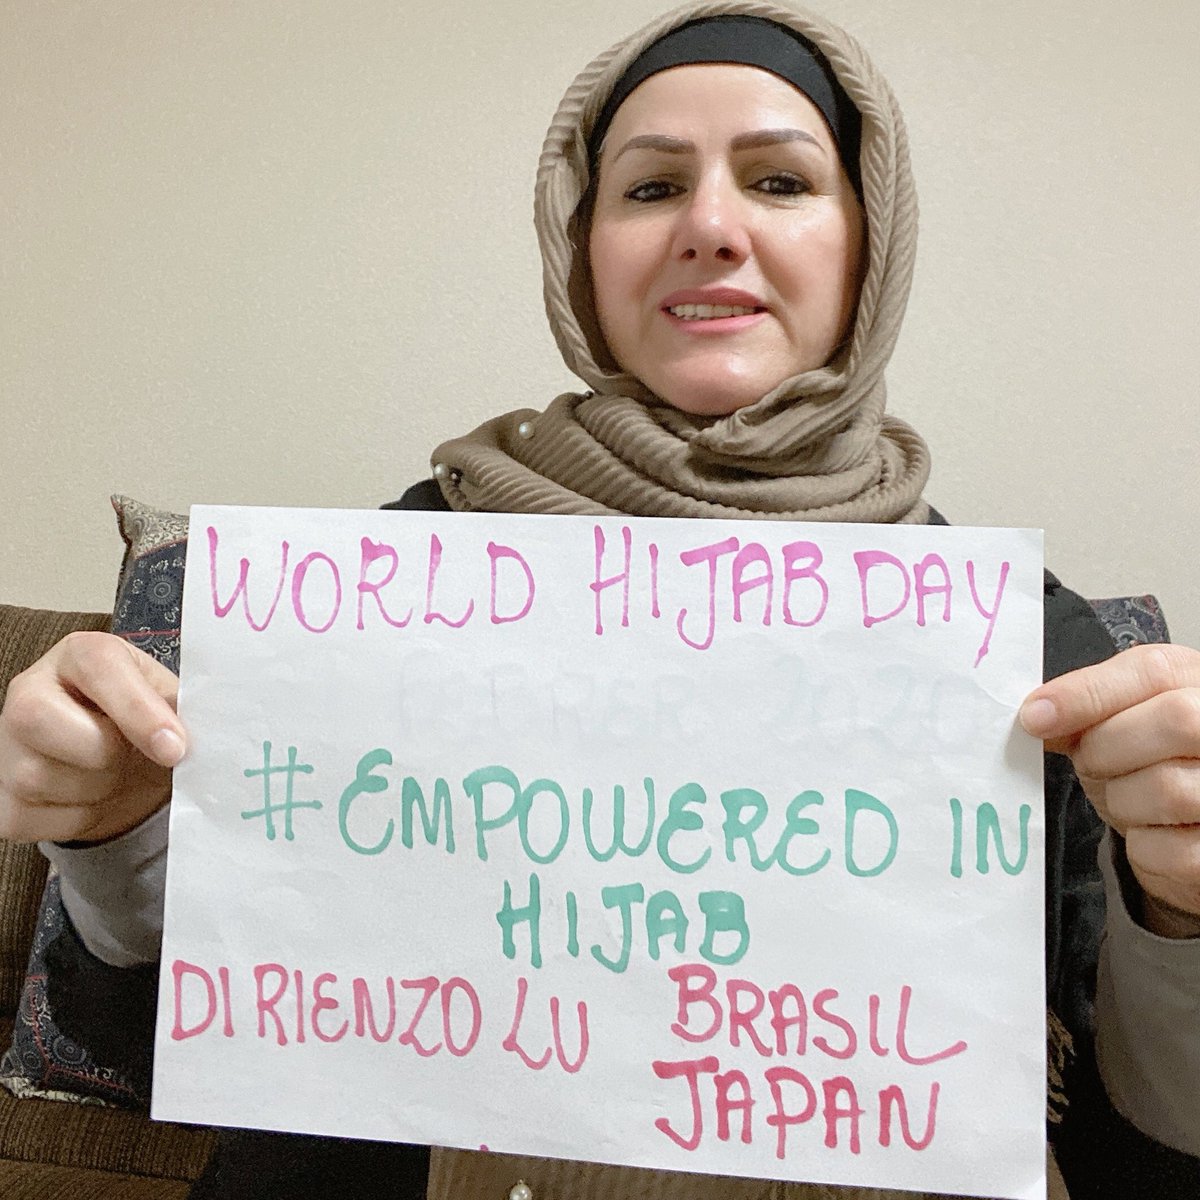 WORLD HIJAB DAY
#EMPOWERED IN
HIJAB
DI RIENZO LU BRASIL
JAPAN